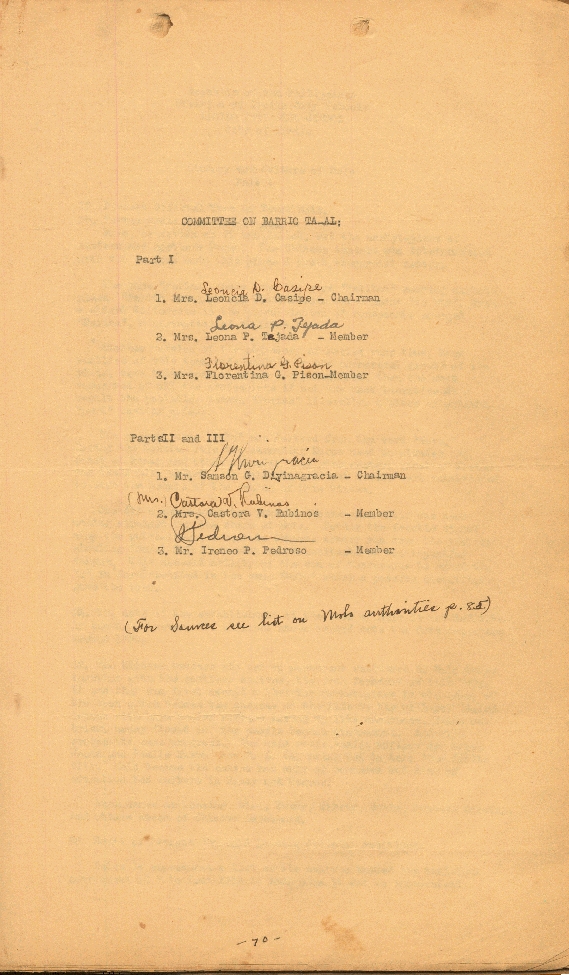 COMMITTEE ON BARRIO TA-AL:
Part I
Leoncia D. Casipe
1. Mrs. Leoncia D. Casipe - Chairman
Leona P. Tejada
2. Mrs. Leona P. Tejada - Member
Florentina G. Pison
3. Mrs. Florentina G. Pison-Member
Parts II and III
1. Mr. Samson G. Divinagracia - Chairman
(Mrs.) Castora V. Rubinos
2. Mrs. Castora V. Rubinos - Member
3. Mr. Ireneo P. Pedroso - Member
(For Sources see list on Molo authorities p. 85)
- 70 -